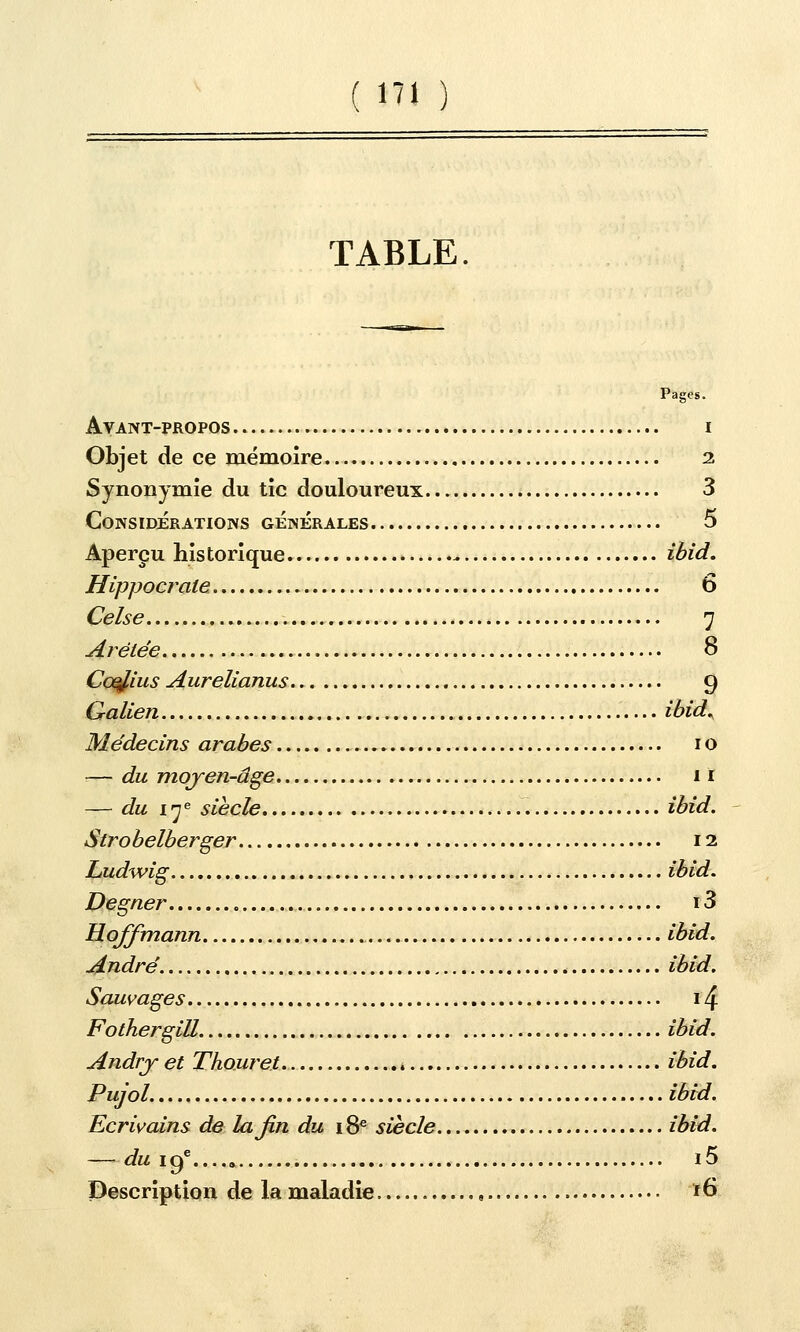 ( 171 )
TABLE.
Pages.
AVANT-PROPOS.................... 1
Objet de ce mémoire.................... 2
Synonymie du tic douloureux.................... 3
CONSIDÉRATIONS GÉNÉRALES.................... 5
Aperçu historique.................... ibid.
Hippocrate.................... 6
Celse.................... 7
Arétée.................... 8
Cœlius Aurelianus.................... 9
Galien.................... ibid.
Médecins arabes.................... 10
— du moyen-âge.................... 11
— du 17e siècle.................... ibid.
Strobelberger.................... 12
Ludwig.................... ibid.
Degner.................... 13
Hoffmann.................... ibid.
André.................... ibid.
Sauvages.................... 14
Fothergill.................... ibid.
Andry et Thouret.................... ibid.
Pujol.................... ibid.
Ecrivains de la fin du 18e siècle.................... ibid.
— du 19e.................... 15
Description de la maladie.................... 16